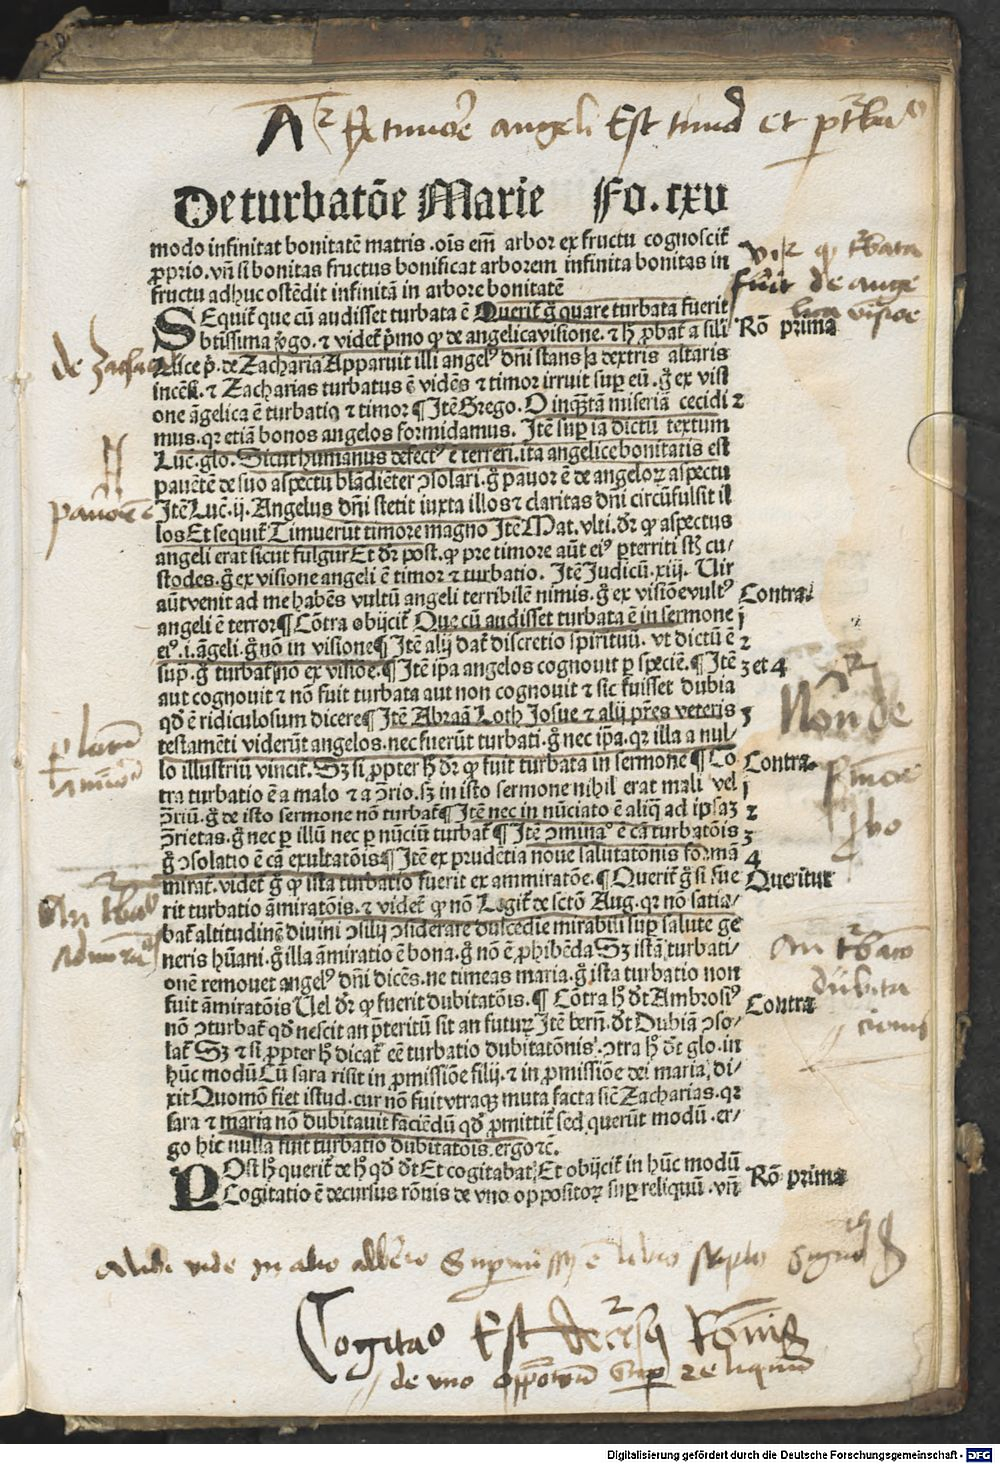 angeli Est timor et
De turbatōe Marie Fo. cxv
modo infinitat bonitatē matris .oīs em̄ arbor ex fructu cognoscit᷑
ꝓprio. vn̄ si bonitas fructus bonificat arborem infinita bonitas in
fructu adhuc ostēdit infinitā in arbore bonitatē
turbata
fuit de ange
lica visione
SEquit᷑ que cū audisset turbata ē Querit᷑ g̊ quare turbata fuerit
btissima v̊go. ⁊ videt᷑ p̱mo ꝙ de angelica visione. ⁊ h̨ ꝓbat᷑ a sili
Rō prima
de Zacharia
Luce p̱. de Zacharia Apparuit illi angelꝰ dn̄i stans a dextris altaris
incēsi. ⁊ Zacharias turbatus ē vidēs ⁊ timor irruit suꝑ eū. g̊ ex visi
one āgelica ē turbatio ⁊ timor ¶ Itē Grego. O inquātā miseriā cecidi
2
mus. qꝛ etiā bonos angelos formidamus. Itē suꝑ iā dictū textum
Luc̄. glo. Sicut humanus defectꝰ ē terreri. ita angelice bonitatis est
pauētē de suo aspectu blādiēter ↄsolari. g̊ pauor ē de angeloꝝ aspectu
Itē Luc̄. ij. Angelus dn̄i stetit iuxta illos ⁊ claritas dn̄i circūfulsit il
los Et sequit᷑ Timuerūt timore magno Itē Mat. vlti. dr̄ ꝙ aspectus
angeli erat sicut fulgur Et dr̄ post. ꝙ pre timore aūt eiꝰ ꝑterriti st̄ cu⸗
stodes. g̊ ex visione angeli ē timor ⁊ turbatio. Itē Judicū. xiij. Vir
aūt venit ad me habēs vultū angeli terribilē nimis. g̊ ex visiōe vultꝰ
Contra.
angeli ē terror ¶ Cōtra obijcit᷑ Que cū audisset turbata ē in sermone
1
eiꝰ. i. āgeli. g̊ nō in visione ¶ Itē alij dat᷑ discretio spirituū. vt dictū ē
2
sup̱. g̊ turbat᷑ nō ex visiōe. ¶ Itē ip̄a angelos cognouit ꝑ speciē. ¶ Itē
3 et 4
aut cognouit ⁊ nō fuit turbata aut non cognouit ⁊ sic fuisset dubia
qd̄ ē ridiculosum dicere ¶ Itē Abraā Loth Josue ⁊ alij pr̄es veteris
3
testamēti viderūt angelos. nec fuerūt turbati. g̊ nec ip̄a. qꝛ illa a nul⸗
lo illustriū vincit᷑. Sꝫ si ꝓpter h̨ dr̄ ꝙ fuit turbata in sermone ¶ Co
Contra.
tra turbatio ē a malo ⁊ a ↄrio. sꝫ in isto sermone nihil erat mali vel
1
ↄriū. g̊ de isto sermone nō turbat᷑ ¶ Itē nec in nūciato ē aliq̄ ad ipsaꝫ
2
ↄrietas. g̊ nec ꝑ illū nec ꝑ nūciū turbat᷑ ¶ Itē ↄminaᵒ ē cā turbatōis
3
g̊ ↄsolatio ē cā exultatōis ¶ Itē ex prudētia noue salutatōnis formā
4
mirat᷑. videt᷑ g̊ ꝙ ista turbatio fuerit ex ammiratōe. ¶ Querit᷑ g̊ si fue
Queritur
rit turbatio āmiratōis. ⁊ videt᷑ ꝙ nō Legit᷑ de sctō Aug. qꝛ nō satia⸗
bat᷑ altitudinē diuini ↄsilij ↄsiderare dulcedīe mirabili suꝑ salute ge
neris hūani. g̊ illa āmiratio ē bona. g̊ nō ē ꝓhibēda Sꝫ istā turbati⸗
onē remouet angelꝰ dn̄i dicēs. ne timeas maria. g̊ ista turbatio non
fuit āmiratōis Vel dr̄ ꝙ fuerit dubitatōis. ¶ Cōtra h̨ dt̄ Ambrosiꝰ
Contra
nō ↄturbat᷑ qd̄ nescit an p̱teritū sit an futuꝝ Itē bern̄. dt̄ Dubiā ↄso⸗
lat᷑ Sꝫ ⁊ si ꝓpter h̨ dicat᷑ eē turbatio dubitatōnis. ↄtra h̨ dt̄ glo. in
hūc modū Cū sara risit in ꝓmissiōe filij. ⁊ in ꝓmissiōe dei maria, di⸗
xit Quomō fiet istud. cur nō fuit vtraqꝫ muta facta sic̄ Zacharias. qꝛ
sara ⁊ maria nō dubitauit faciēdū qd̄ ꝓmittit᷑ sed querūt modū. er⸗
go hic nulla fuit turbatio dubitatōis. ergo ⁊c̄.
POst h̨ querit᷑ de h̨ qd̄ dt̄ Et cogitabat᷑ Et obijcit᷑ in hūc modū
Rō prima
Cogitatio ē decursus rōnis de vno oppositoꝝ suꝑ reliquū. vn̄
vide in alio
Cogitaᵒ Est decursꝰ Rōnis
de vno oppōitorū suꝑ reliquum
Digitalisierung gefördert durch die Deutsche Forschungsgemeinschaft - DFG